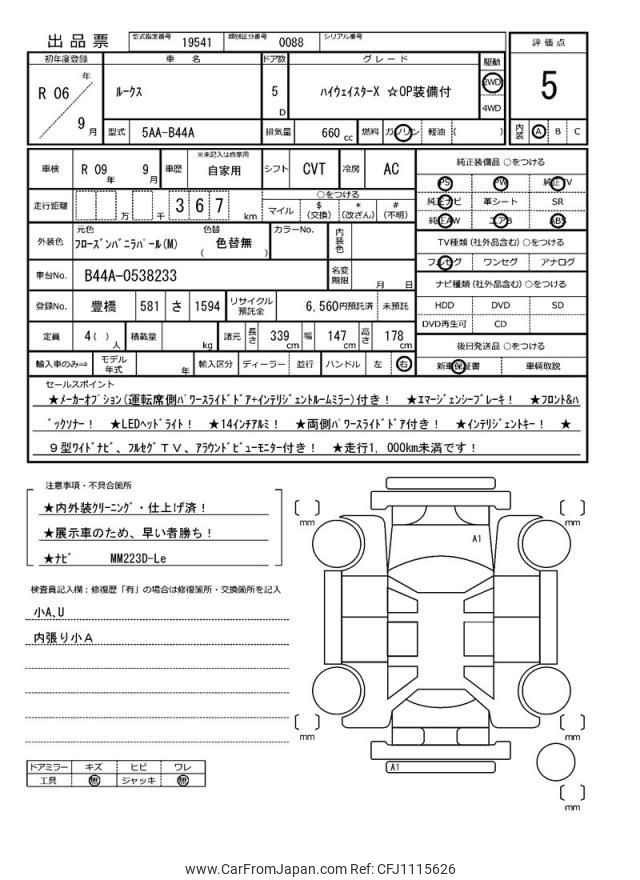 出品票 型式指定番号 19541 類別区分番号 0088 シリアル番号
評価点
5
内装 A B C
初年度登録 車 名 ドア数 グレード 駆動
R 06 年 9 月
ルークス
5 D
ハイウェイスターX ☆OP装備付
2WD
4WD
型式 5AA-B44A 排気量 660 cc 燃料 ガソリン 軽油 ( )
車検 R 09 年 9 月 車歴 ※未記入は自家用 自家用 シフト CVT 冷房 AC
走行距離 万 千 3 6 7 km
○をつける
マイル $ (交換) * (改ざん) # (不明)
外装色 元色 フローズンバニラパール(M) 色替 色替無 ( )
カラーNo. 内装色
車台No. B44A-0538233 名変期限 月 日
登録No. 豊橋 581 さ 1594 リサイクル預託金 6,560円預託済 未預託
定員 4( ) 人 積載量 kg 諸元 長さ 339 cm 幅 147 cm 高さ 178 cm
輸入車のみ⇒ モデル年式 年 輸入区分 ディーラー 並行 ハンドル 左 右
純正装備品 ○をつける
PS PW 純正TV
純正ナビ 革シート SR
純正AW エアB ABS
TV種類 (社外品含む) ○をつける
フルセグ ワンセグ アナログ
ナビ種類 (社外品含む) ○をつける
HDD DVD SD
DVD再生可 CD
後日発送品 ○をつける
新車保証書 車輌取説
セールスポイント
★メーカーオプション(運転席側パワースライドドア+インテリジェントルームミラー)付き! ★エマージェンシーブレーキ! ★フロント&バ
ックソナー! ★LEDヘッドライト! ★14インチアルミ! ★両側パワースライドドア付き! ★インテリジェントキー! ★
9型ワイドナビ、フルセグTV、アラウンドビューモニター付き! ★走行1,000km未満です!
注意事項・不具合箇所
★内外装クリーニング・仕上げ済!
★展示車のため、早い者勝ち!
★ナビ MM223D-Le
検査員記入欄:修復歴「有」の場合は修復箇所・交換箇所を記入
小A､U
内張り小A
ドアミラー キズ ヒビ ワレ
工具 無 ジャッキ 無
mm
mm
A1
mm
mm
A1
mm
www.CarFromJapan.com Ref: CFJ1115626